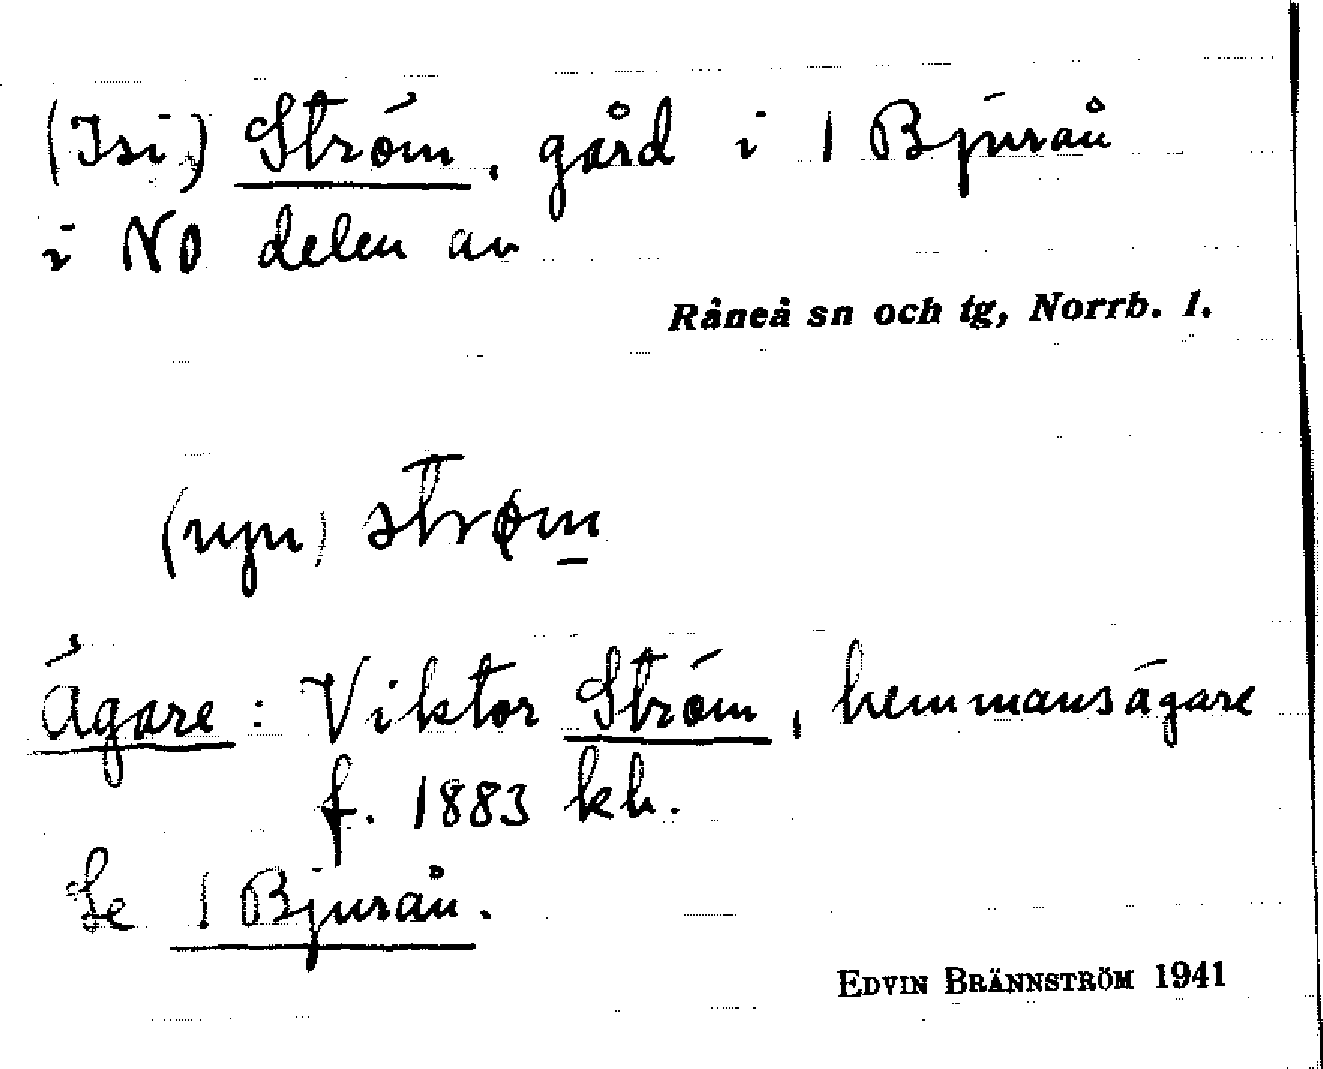 (Isi) Ström, gård i 1 Bjurån
i NO delen av
Råneå sn och tg, Norrb. l.
(nyn) strøm
Ägare: Viktor Ström, hemmansägare
f. 1883 kh.
Se 1 Bjurån.
EDVIN BRÄNNSTRÖM 1941